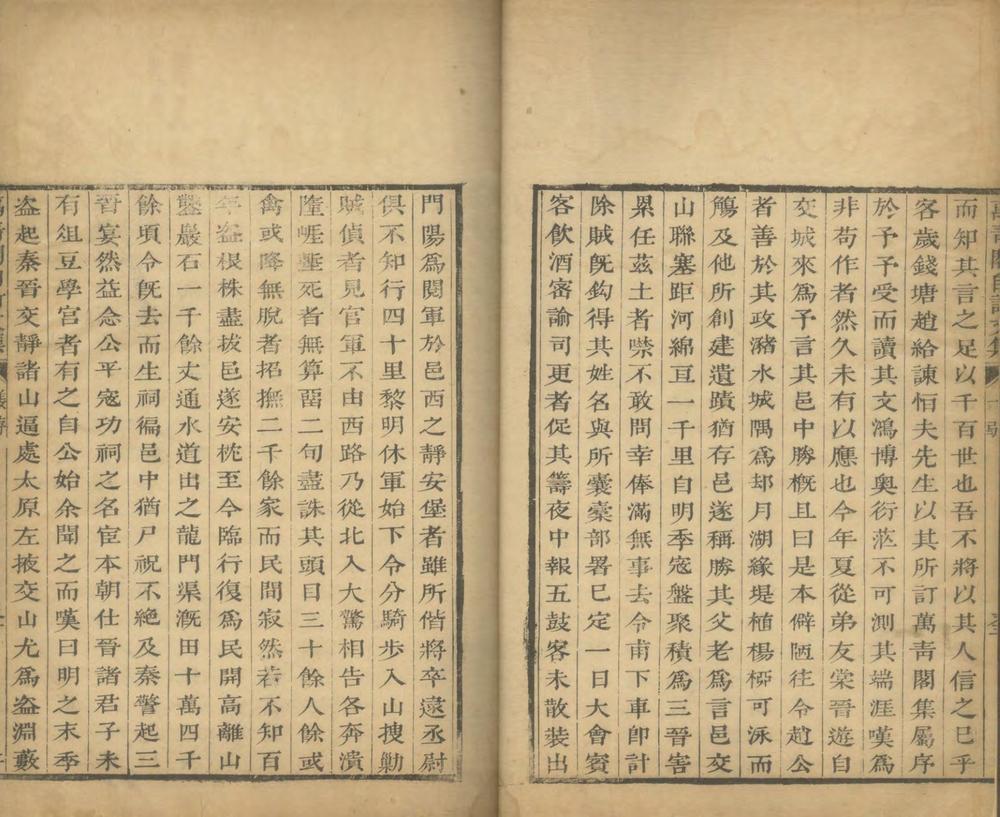 而知其言之足以千百世也吾不將以其人信之已乎
客歲錢塘趙給諫恒夫先生以其所訂萬青閣集屬序
於予予受而讀其文鴻博奧衍茫不可測其端涯嘆爲
非苟作者然久未有以應也今年夏從弟友棠晉遊自
交城來爲予言其邑中勝概且曰是本僻陋往令趙公
者善於其政瀦水城隅爲却月湖緣堤植楊栁可泳而
觴及他所創建遺蹟猶存邑遂稱勝其父老爲言邑交
山聯塞距河綿亘一千里自明季宼盤聚積爲三晉害
累任茲土者噤不敢問幸俸滿無事去令甫下車卽計
除賊旣鈎得其姓名與所囊橐部署已定一日大會賓
客飲酒密諭司更者促其籌夜中報五鼓客未散裝出
門陽爲閱軍於邑西之靜安堡者雖所偕將卒逮丞尉
俱不知行四十里黎明休軍始下令分騎步入山捜勦
賊偵者見官軍不由西路乃從北入大驚相告各奔潰
墮崕壑死者無算畱二旬盡誅其頭目三十餘人餘或
禽或降無脫者招撫二千餘家而民間寂然若不知百
年盜根株盡拔邑遂安枕至今臨行復爲民開高離山
鑿巖石一千餘丈通水道出之龍門渠漑田十萬四千
餘頃令旣去而生祠徧邑中猶尸祝不絶及秦警起三
晉宴然益念公平宼功祠之名宦本朝仕晉諸君子未
有俎豆學宮者有之自公始余聞之而嘆曰明之末季
盜起秦晉交靜諸山逼處太原左掖交山尤爲盜淵藪